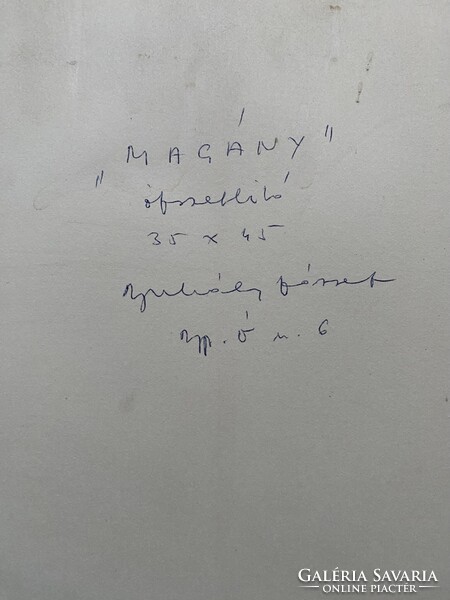 „MAGÁNY"
ofszetlitó
35 x 45
József
Ó u. 6
GALÉRIA SAVARIA
ONLINE PIACTÉR